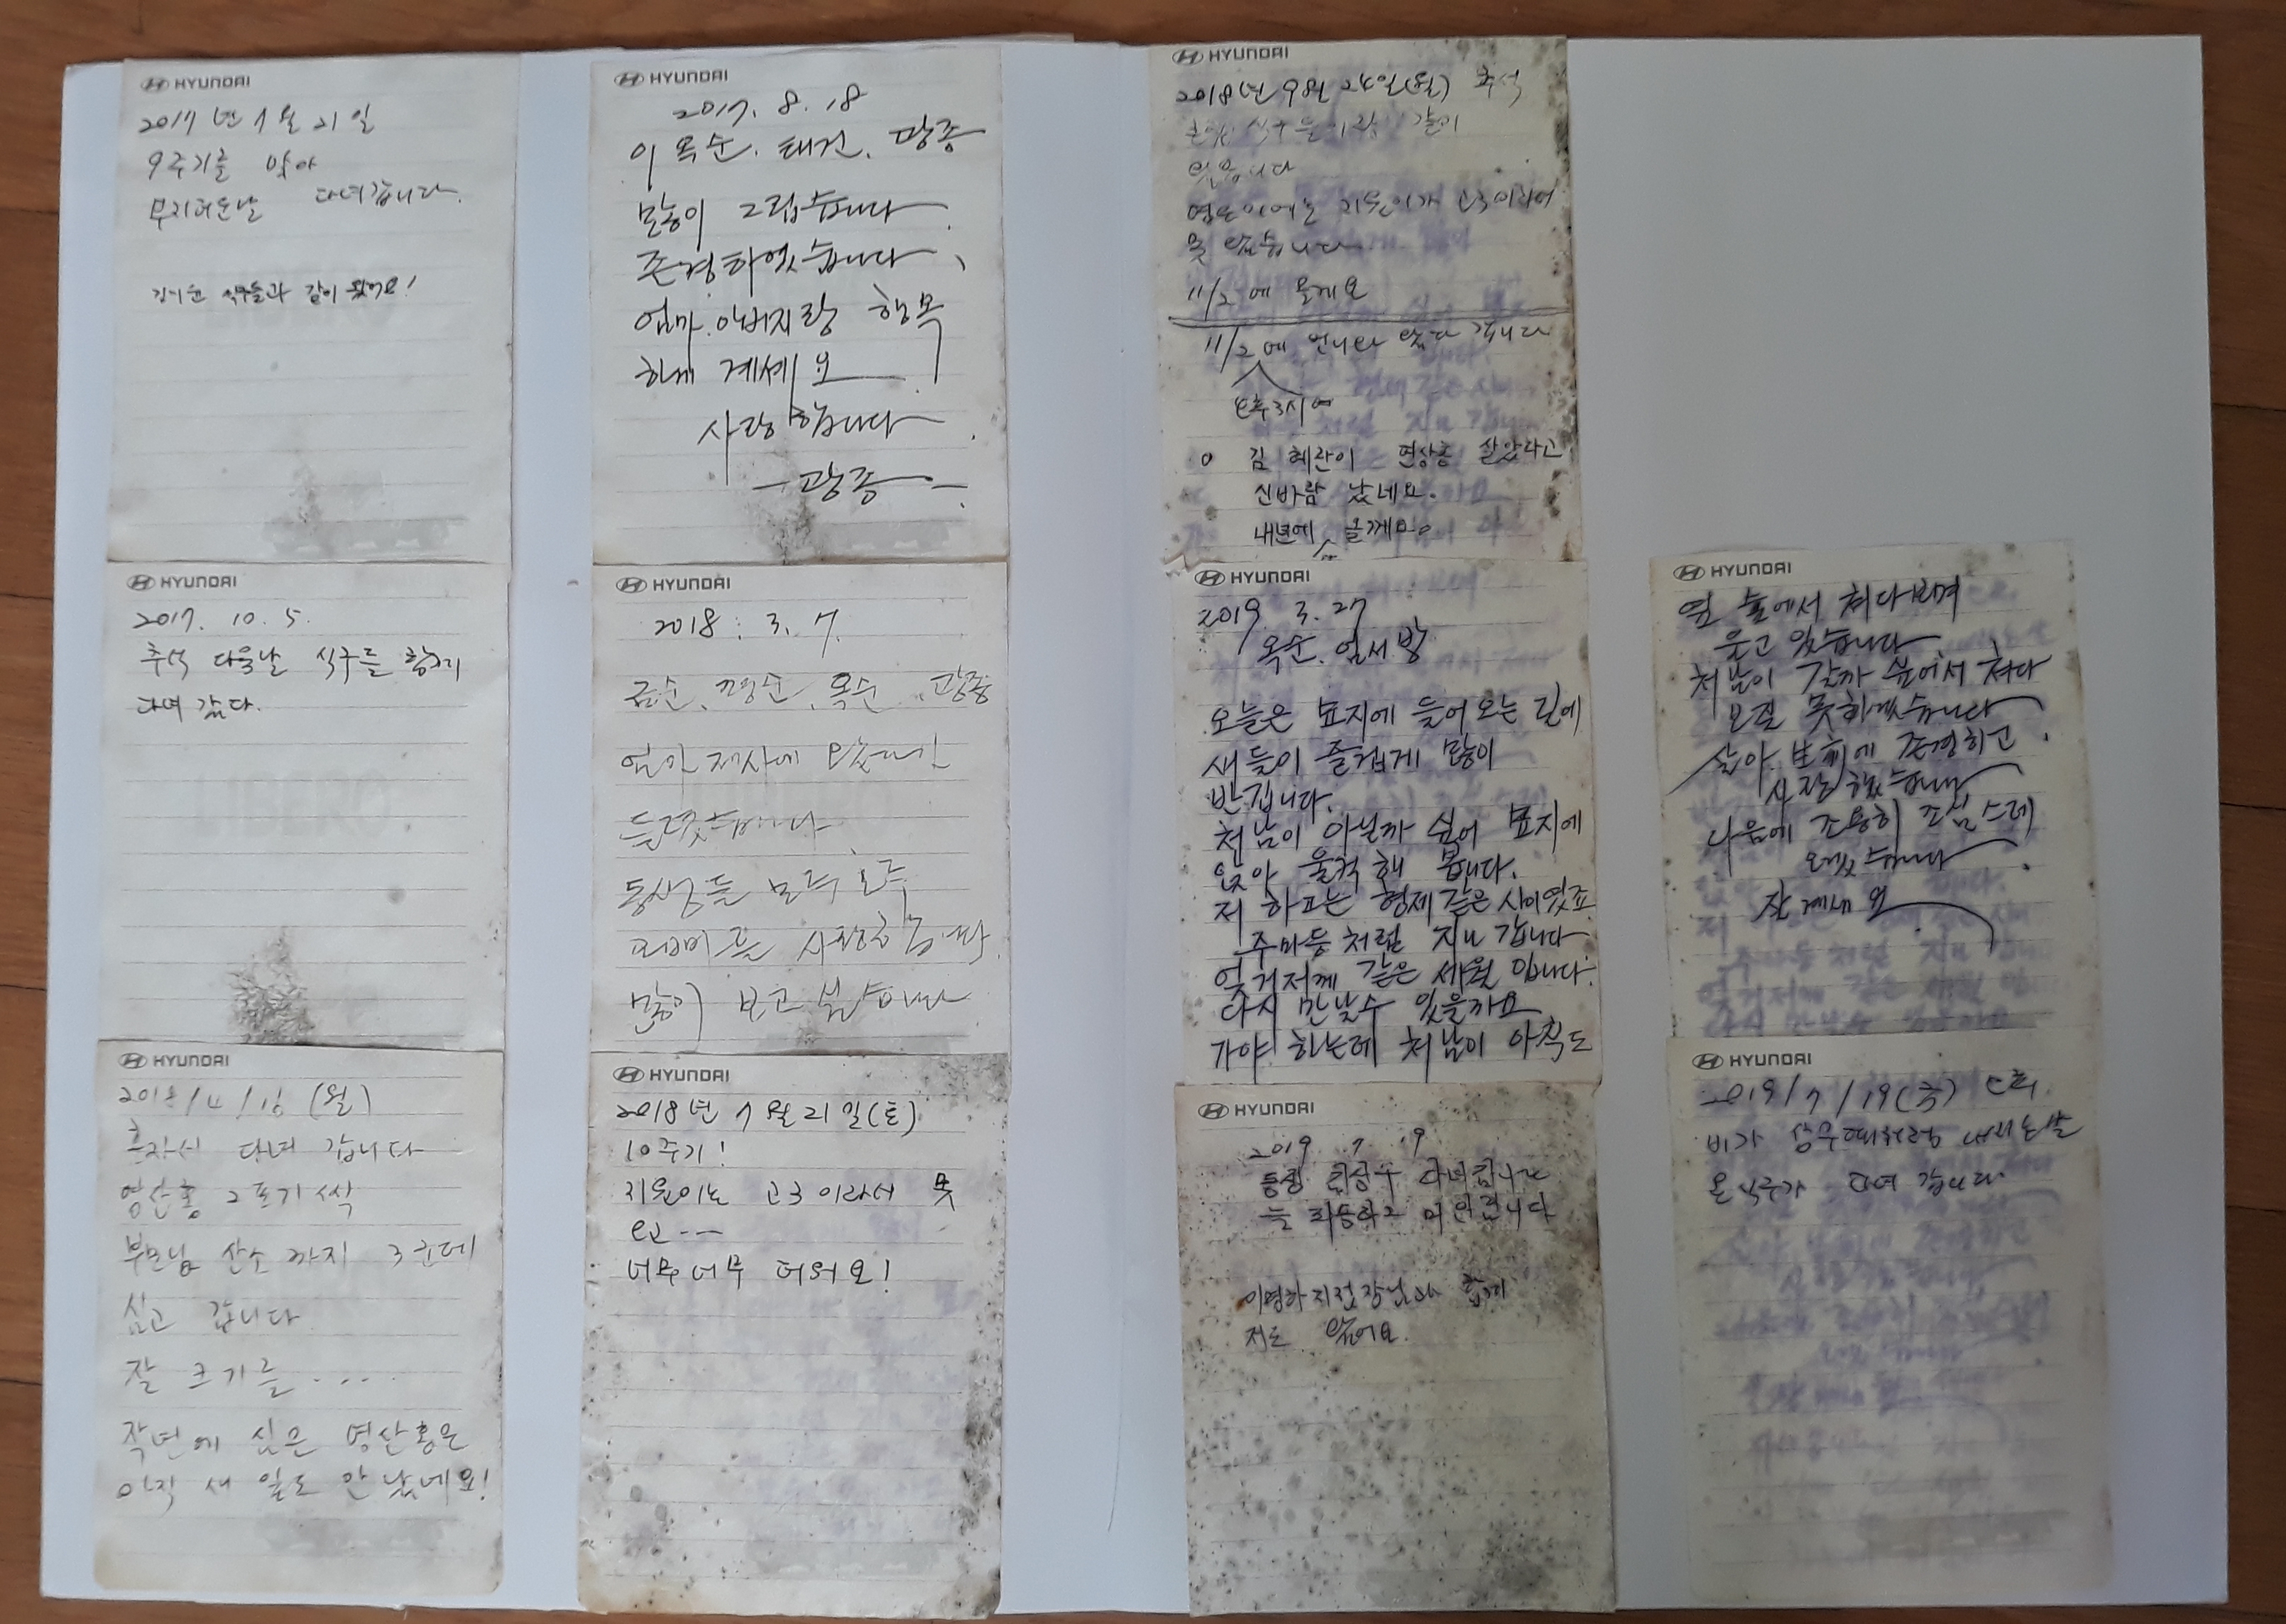 HYUNDAI
2017년 7월 21일
9주기를 맞아
무지더운날 다녀갑니다.
식구들과 같이 왔어요!
HYUNDAI
2017. 10. 5.
추석 다음날 식구들 함께
다녀 감다.
HYUNDAI
2018/4/16 (월)
혼자서 다녀 갑니다
영산홍 2포기씩
부모님 산소까지 3군데
심고 갑니다
잘 크기를 ....
작년에 심은 영산홍은
아직 새 잎도 안 났네요!
HYUNDAI
2017. 8. 18
이옥순. 태건. 광종
많이 그립습니다.
존경하였습니다.
엄마. 아버지랑 행복
하게 계세요
사랑합니다.
-광종-
HYUNDAI
2018. 3. 7.
금순, 정순, 옥순, 광종
엄마 제사에 왔다가
들렸습니다.
동생들 모두 모두
많이 보고 싶습니다
HYUNDAI
2018년 7월 21일(토)
10주기!
지원이는 고3이라서 못
오고---
너무너무 더워요!
HYUNDAI
2018년 9월 24일(월) 추석
식구들이랑 같이
왔습니다
지원이가 고3이라서
못 왔습니다.
11/2에 올게요
11/2에 언니와 왔다 갑니다
오후3시에
김혜란이 연상홍 살았다고
신바람 났네요.
내년에 올께요.
HYUNDAI
2019. 3. 27
옥순. 엄서방
오늘은 묘지에 들어오는 길에
새들이 즐겁게 많이
반깁니다.
처남이 아닐까 싶어 묘지에
앉아 울컥해 봅니다.
저하고는 형제같은 사이였죠
주마등처럼 지나갑니다
엊거저께 같은 세월입니다.
다시 만날수 있을까요
가야 하는데 처남이 아직도
HYUNDAI
2019. 7. 9
동생 다녀갑니다
늘 미안합니다
이영하 지점장님과 함께
저도 왔어요.
HYUNDAI
옆 숲에서 쳐다보며
웃고 있습니다
처남이 갈까 싶어서 쳐다
보질 못하겠습니다.
살아 生前에 존경하고
사랑했습니다
다음에 조용히 조심스레
오겠습니다.
잘 계세요
HYUNDAI
2019/7/19(금) 오후.
비가 장마때처럼 내리는날
온식구가 다녀 갑니다.